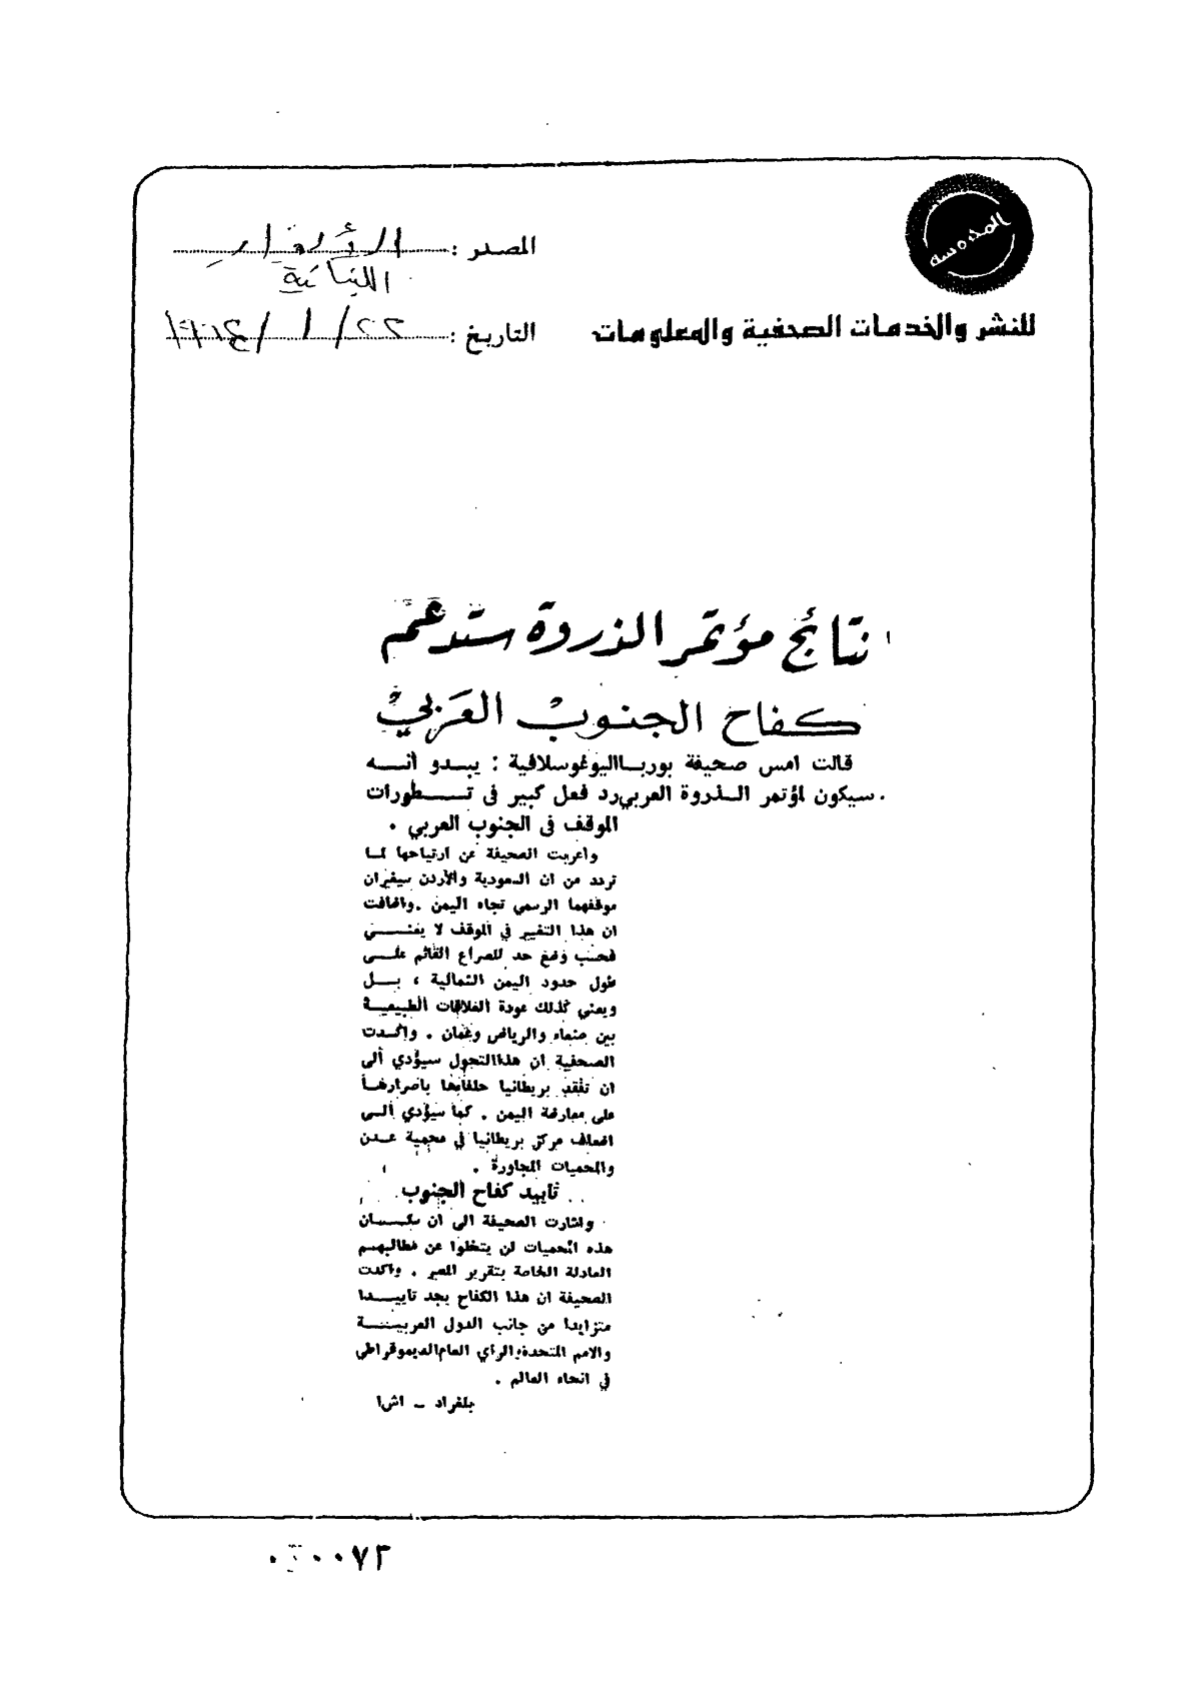 المحروسة
للنشر والخدمات الصحفية والمعلومات
المصدر :
اللبنانية
التاريخ : ٢٢ / ١ / ١٩٦٤
نتائج مؤتمر الذروة ستدعم
كفاح الجنوب العربي
قالت امس صحيفة بوربا اليوغوسلافية : يبدو أنه
سيكون لمؤتمر الذروة العربي رد فعل كبير في تطورات
الموقف في الجنوب العربي .
واعربت الصحيفة عن ارتياحها لما
تردد من ان السعودية والأردن سيغيران
موقفهما الرسمي تجاه اليمن . واضافت
ان هذا التغيير في الموقف لا يعني
فحسب وضع حد للصراع القائم على
طول حدود اليمن الشمالية ، بل
ويعني كذلك عودة العلاقات الطبيعية
بين صنعاء والرياض وعمان . واكدت
الصحفية ان هذا التحول سيؤدي الى
ان تفقد بريطانيا حلفاءها باصرارها
على معارضة اليمن . كما سيؤدي الى
اضعاف مركز بريطانيا في محمية عدن
والمحميات المجاورة .
تأييد كفاح الجنوب
واشارت الصحيفة الى ان سكان
هذه المحميات لن يتخلوا عن مطالبهم
العادلة الخاصة بتقرير المصير . واكدت
الصحيفة ان هذا الكفاح يجد تاييدا
متزايدا من جانب الدول العربية
والامم المتحدة والرأي العام الديموقراطي
في انحاء العالم .
بلغراد – اشا